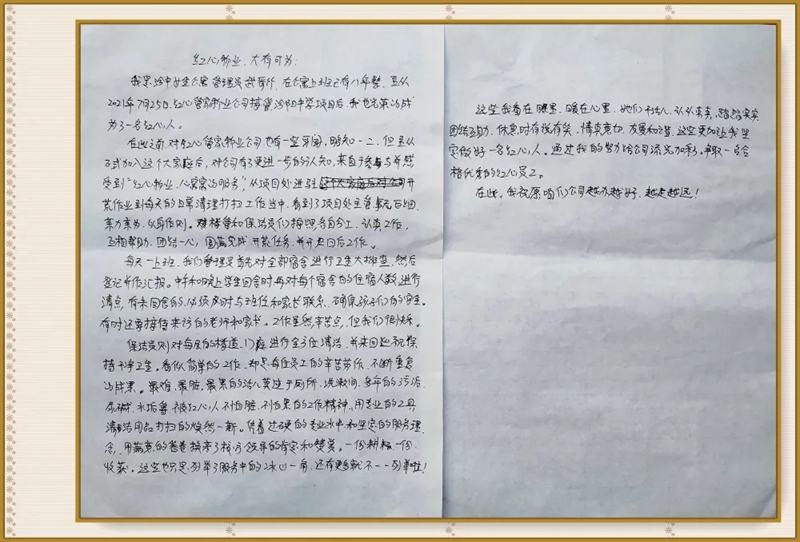 红心物业、大有可为:
我是洛中女生公寓管理员武    在公寓上班已有八年整,且从
2021年7月25日红心管家物业公司接管洛阳中学项目后,我也荣幸的成
为了一名红心人。
在此之前,对红心管家物业公司也有一些耳闻,略知一二,但真从
正式加入这个大家庭后,对公司有了更进一步的认知,来自于参与与并感
受到“红心物业、心贴心的服务”从项目处进驻    开
荒作业到每天的日常清理打扫工作当中,看到了项目处主管
亲力亲为、以身作则。    和保洁员们按照各自分工、认真工作,
互相帮助、团结一心,圆满完成开荒任务,并开走日后工作。
每天一上班,我们管理员首先对全部宿舍进行卫生大排查,然后
登记并作汇报。中午和晚上学生回舍时,再对每个宿舍的住宿人数,进行
清点,有未回舍的,必须及时与班主任和家长联系,确保孩子们的安全。
有时还要接待来访的老师和家长。工作虽然辛苦点,但我们很快乐。
保洁员则对每层的楼道、门庭进行全方位清洁,并来回巡视保
持干净卫生。看似简单的工作,却是每位员工的辛苦劳作,不断重复
的成果。最难、最脏、最累的活儿莫过于厕所、洗漱间,多年的污垢
、尿碱、水垢等被红心人不怕脏、不怕累的工作精神,用专业的工具
清洁用品打扫的焕然一新。凭着过硬的专业水平和坚定的服务理
念,用满意的答卷换来了校方领导的肯定和赞美。一份耕耘一份
收获。这些也只是列举了服务中的冰山一角,还有更多就不一一列举啦!
这些我看在眼里、暖在心里,她们干活人、认认真真、踏踏实实
团结互助、休息时有说有笑、情真意切、友爱和谐,这些更加让我坚
定做好一名红心人。通过我的努力给公司添光加彩。争取一名合
格优秀的红心员工。
在此,我祝愿咱们公司越办越好、越走越远!